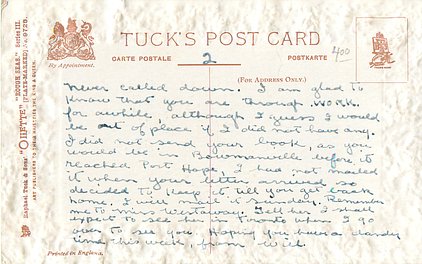 TUCK'S POST CARD
CARTE POSTALE
POSTKARTE
By Appointment.
(FOR ADDRESS ONLY.)
2
400
Raphael Tuck & Sons' "OILETTE" [PLATE-MARKED] No. 9725.
"ROUGH SEAS." Series III.
ART PUBLISHERS TO THEIR MAJESTIES THE KING & QUEEN.
never called down. I am glad to
know that you are through WORK.
for awhile, although I guess I would
be out of place if I did not have any.
I did not send your book, as you
would be in Bowmanville before it
reached Port Hope, I had not mailed
it when your letter arrived so
decided to keep it till you get back
home. I will mail it Sunday. Remember
me to miss Westaway. Tell her I shall
expect to see her in Toronto when I go
over to see you. Hoping you have a dandy
time this week, from Will.
Printed in England.